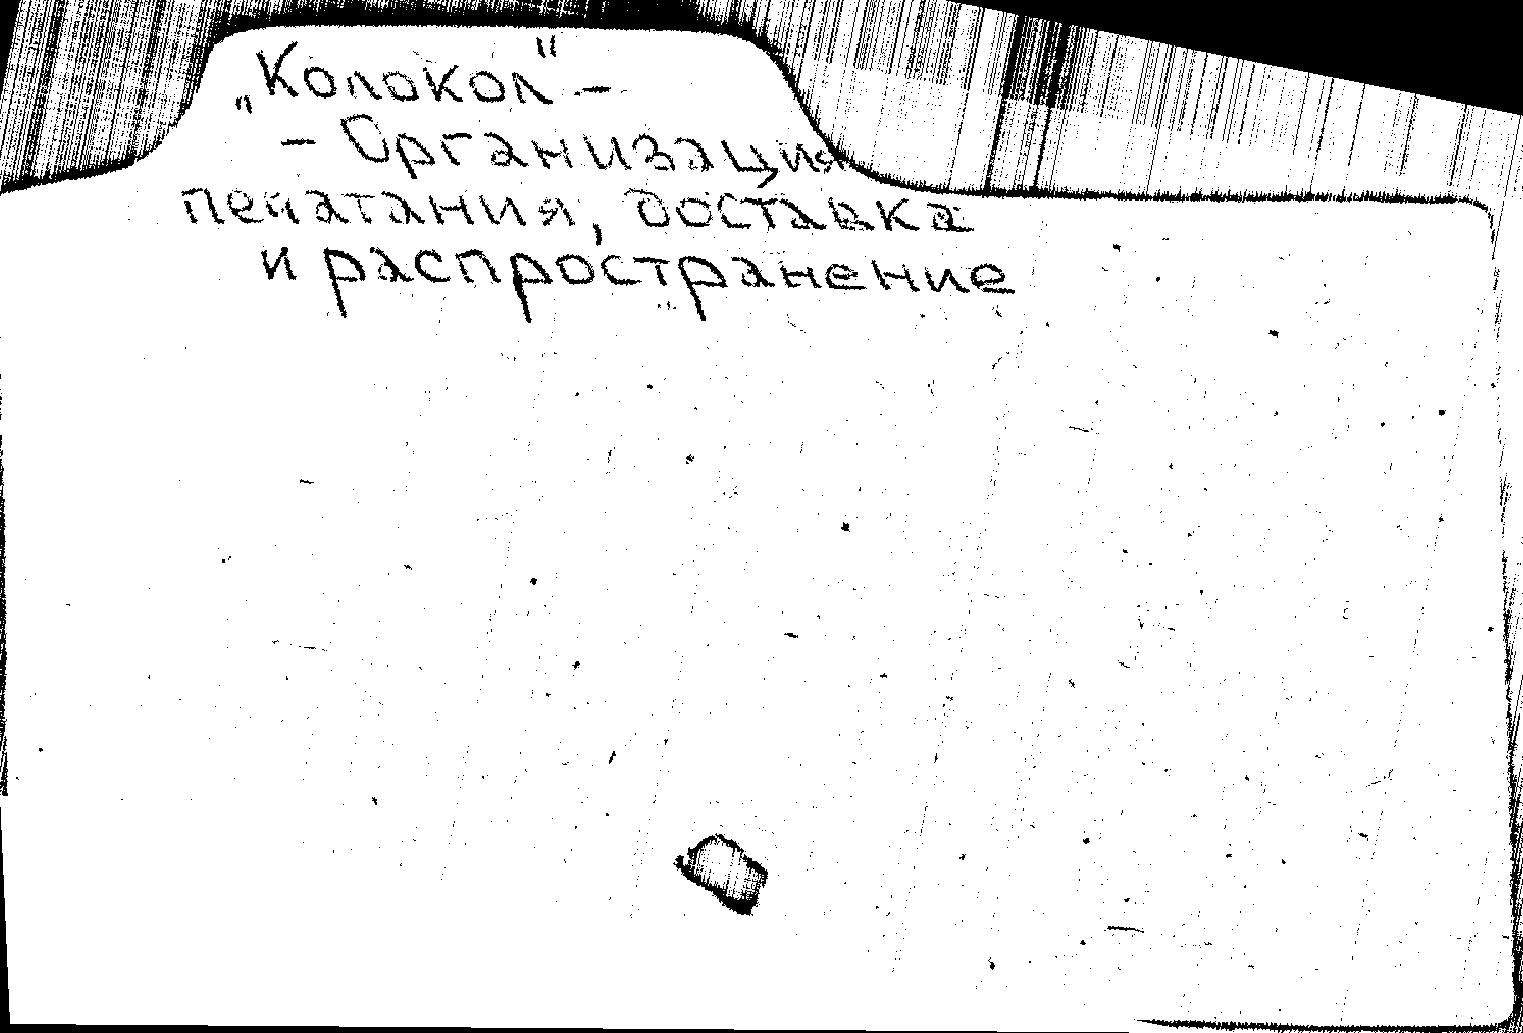 „Колокол" –
– Организация
печатания, доставка
и распространение